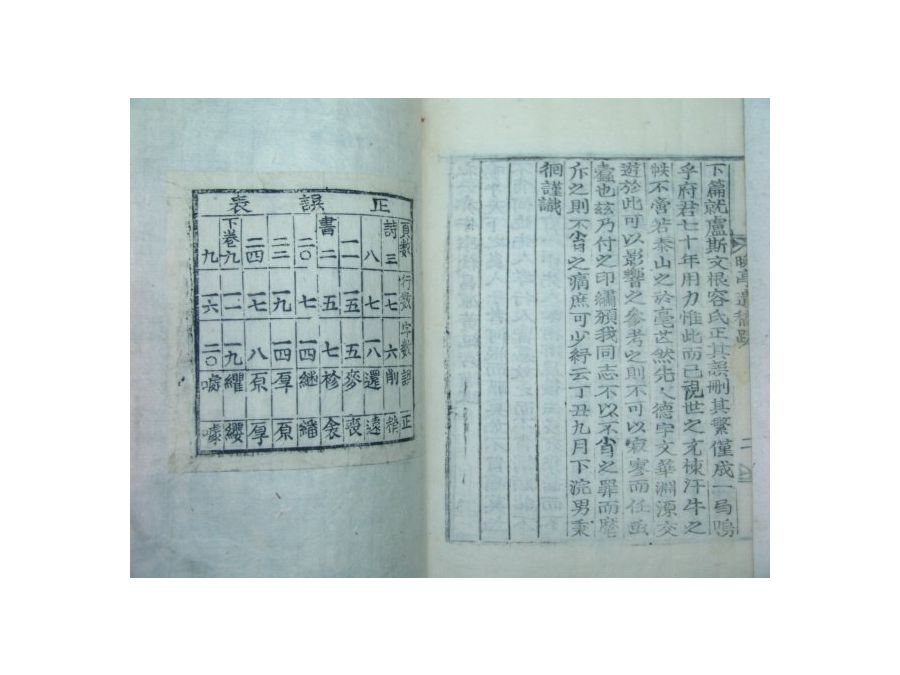 晩亭遺稿跋 二
下篇就盧斯文根容氏正其誤刪其繁僅成一局嗚
乎府君七十年用力惟此而已視世之充棟汗牛之
帙不啻若泰山之於毫芒然先人德宇文華淵源交
遊於此可以影響之參考之則不可以寂寥而任虫
蠹也玆乃付之印繡願我同志不以不肖之罪而麾
斥之則不肖之痛庶可少紓云丁丑九月下浣男秉
徊謹識
正誤表
頁数 行数 字数 誤 正
詩三 一七 六 削
八 七 一八 還 遠
一一 一五 五 麥 喪
書二 五 七 袗 衾
二〇 七 一四 継 繙
二三 一九 一四 厚 原
二四 一七 八 原 厚
下卷九 一一 一九 纓
九 一六 二〇 噱